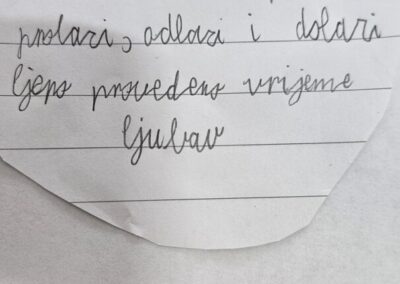 prolazi, odlazi i dolazi
ljepo provedeno vrijeme
ljubav